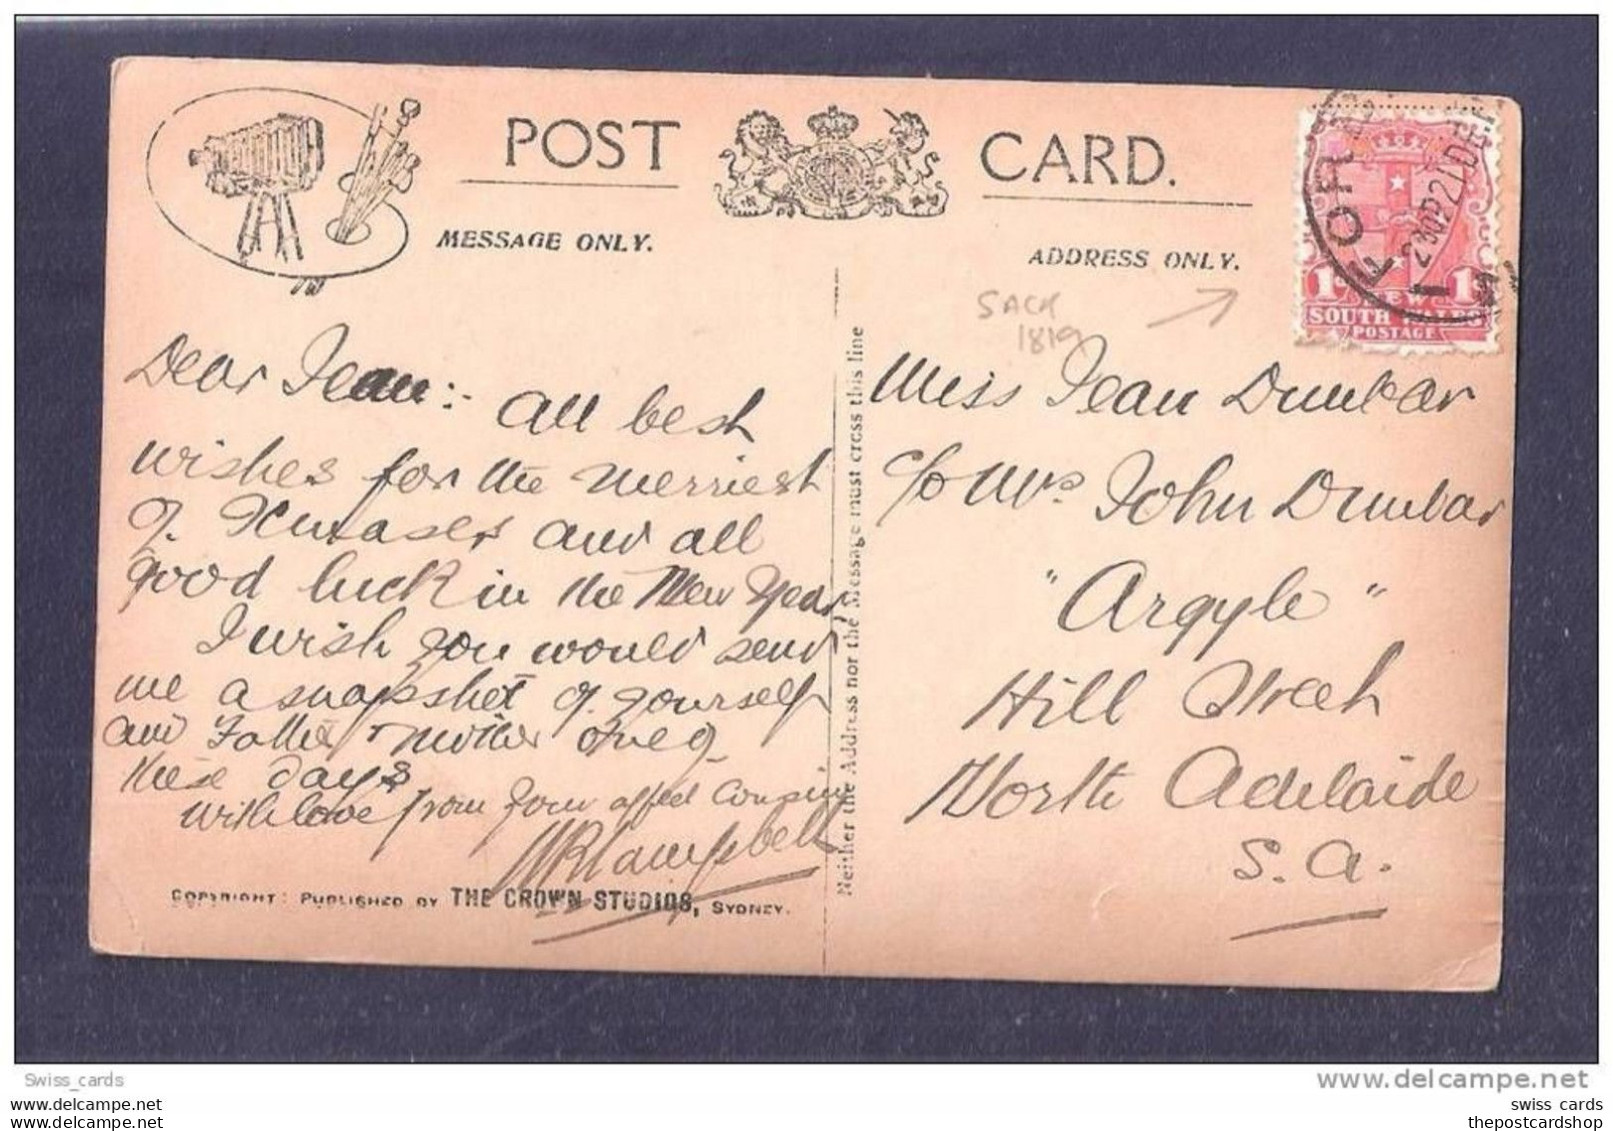 POST CARD.
MESSAGE ONLY.
ADDRESS ONLY.
1d NEW 1d
SOUTH WALES
POSTAGE
FOR
230P 21 DE
SACK
1819
Dear Jean :- All best
wishes for the merriest
of Xmases and all
good luck in the New Year
I wish you would send
me a snapshot of yourself
and Father & Mother one of
these days
With love from your affect cousin
Campbell
COPYRIGHT: PUBLISHED BY THE CROWN STUDIOS, SYDNEY.
Neither the Address nor the Message must cross this line
Miss Jean Dunbar
c/o Mrs John Dunbar
"Argyle"
Hill Street
North Adelaide
S.A.
Swiss_cards
www.delcampe.net
www.delcampe.net
www.thepostcardshop.com
swiss cards
thepostcardshop